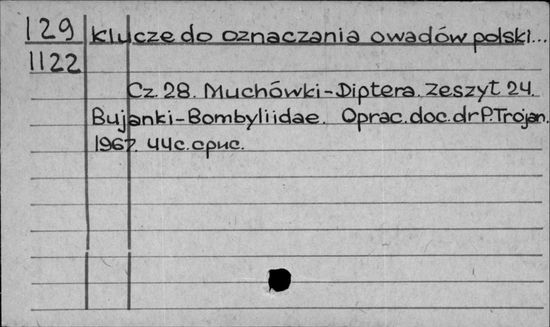 129 Klucze do oznaczania owadów polski...
1122
Cz. 28. Muchówki-Diptera. Zeszyt 24.
Bujanki-Bombyliidae. Oprac. doc. dr P. Trojan.
1967. 44 с. с рис.